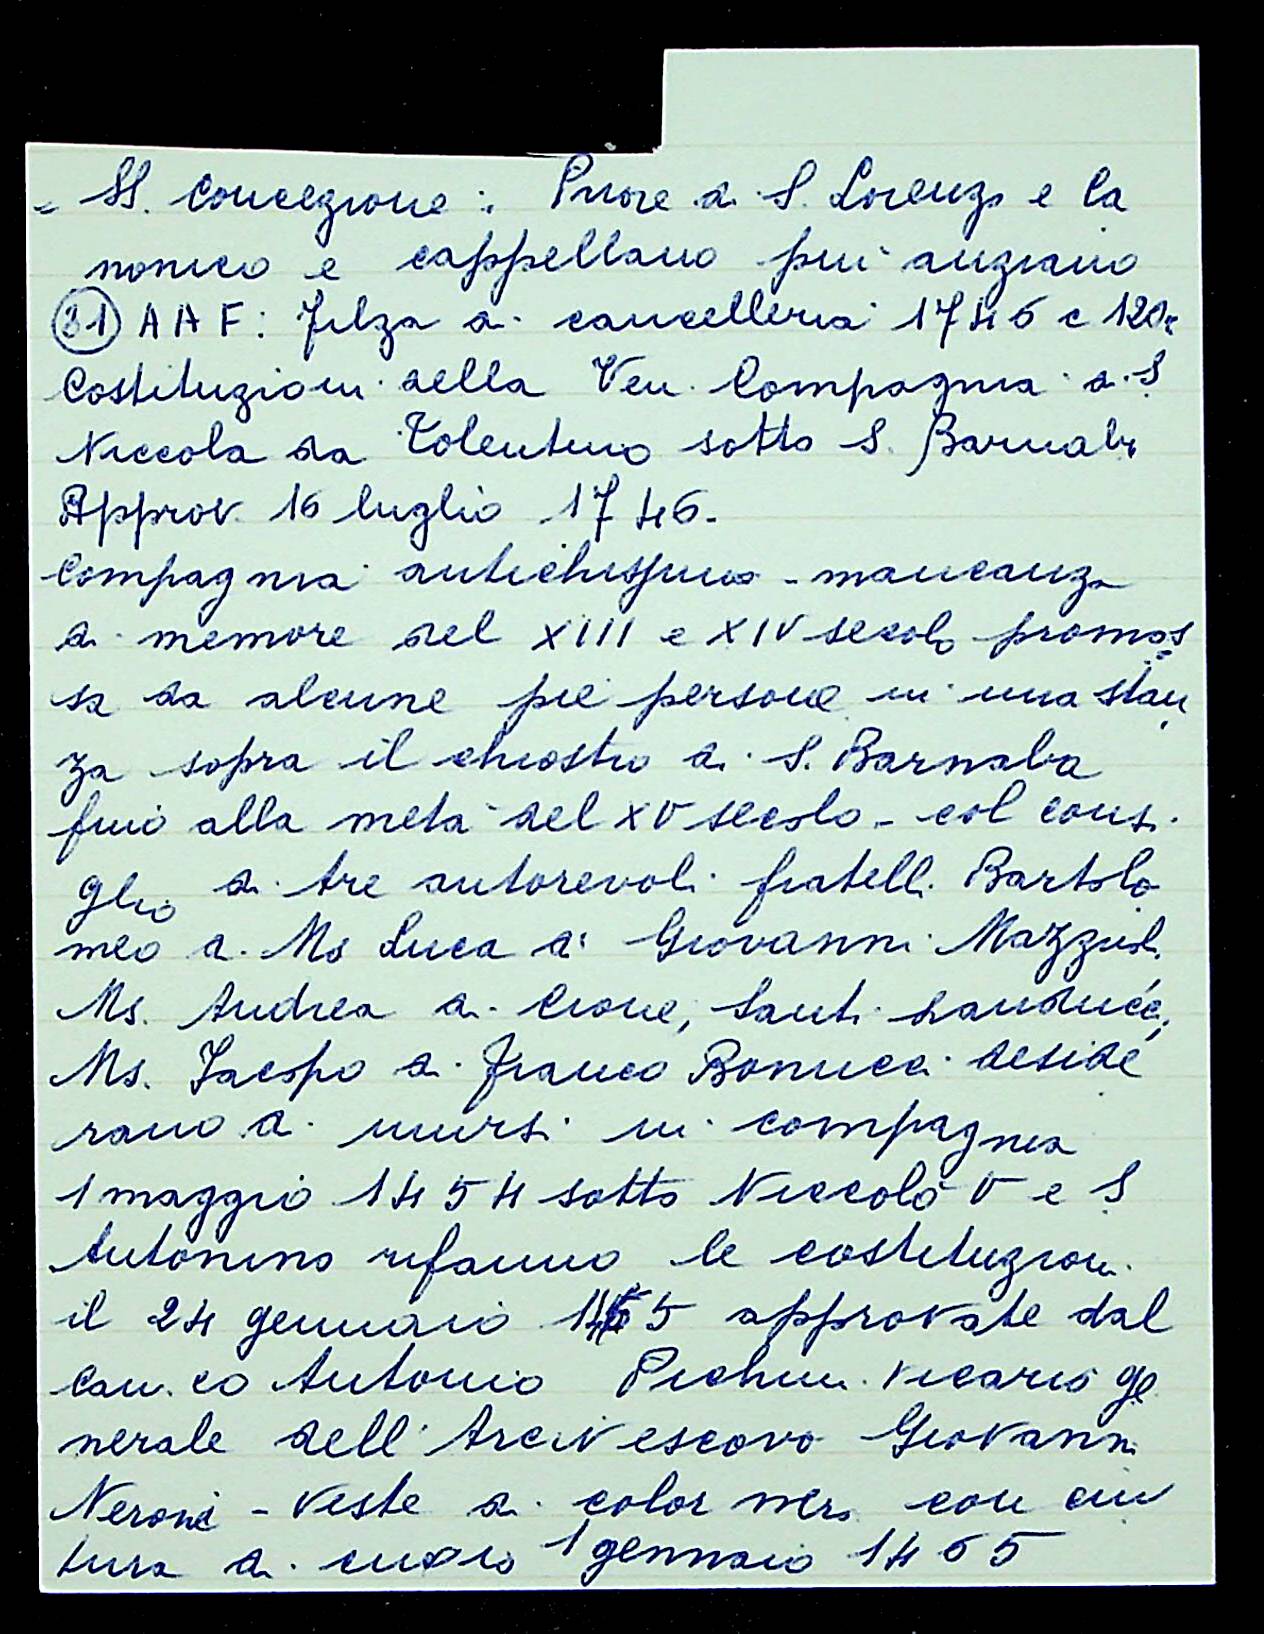 - SS. Concezione: Priore di S. Lorenzo e Ca
nonico e cappellano più anziano
(31) AAF: Filza di cancelleria 1746 c 120r
Costituzioni della Ven. Compagnia di S
Niccola da Tolentino sotto S. Barnaba
Approv. 16 luglio 1746.
Compagnia antichissima - mancanza
di memorie del XIII e XIV secolo promos
sa da alcune pie persone in una stan
za sopra il chiostro di S. Barnaba
fino alla metà del XV secolo - col consi
glio di tre autorevoli fratelli Bartolo
meo di Ms Luca di Giovanni
Ms. Andrea di Cione, Santi
Ms. Jacopo di Franco Bonucci deside
rano di unirsi in compagnia
1 maggio 1454 sotto Niccolò V e S
Antonino rifanno le costituzioni
il 24 gennaio 1465 approvate dal
Can.co Antonio Pichini vicario ge
nerale dell'Arcivescovo Giovanni
Neroni - Veste di color nero con cin
tura di cuoio 1 gennaio 1465